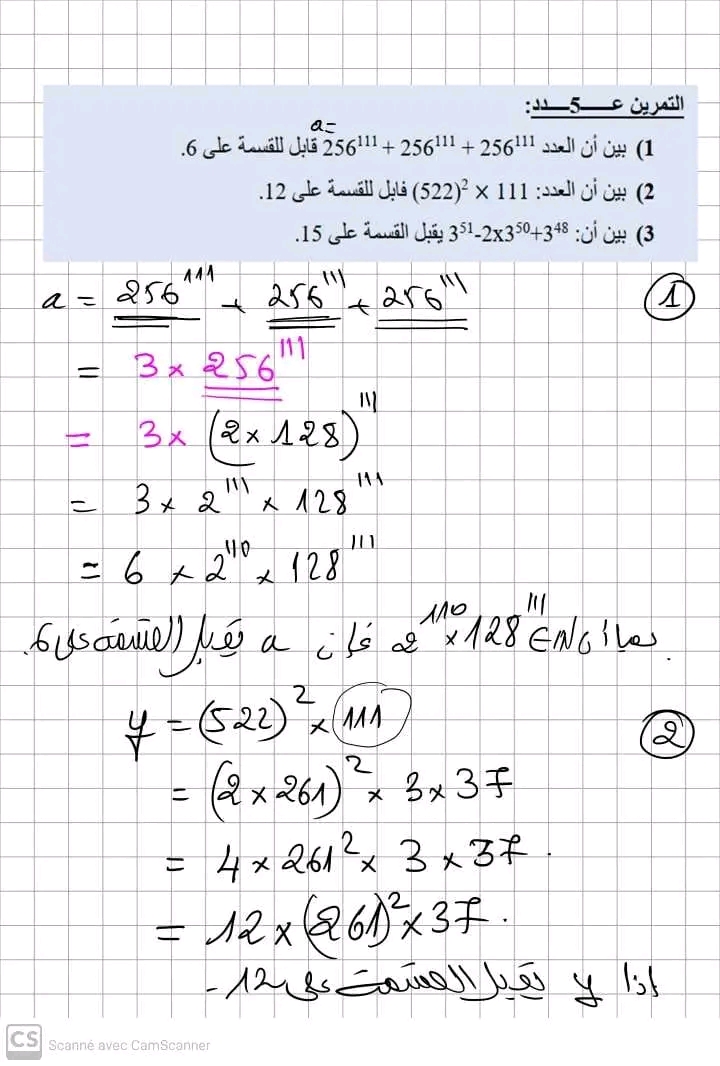 التمرين عـــ5ـــدد:
a=
1) بين أن العدد 256¹¹¹ + 256¹¹¹ + 256¹¹¹ قابل للقسمة على 6.
2) بين أن العدد: 111 × (522)² قابل للقسمة على 12.
3) بين أن: 3⁵¹-2x3⁵⁰+3⁴⁸ يقبل القسمة على 15.
a = 256¹¹¹ + 256¹¹¹ + 256¹¹¹ ①
= 3 × 256¹¹¹
= 3 × (2 × 128)¹¹¹
= 3 × 2¹¹¹ × 128¹¹¹
= 6 × 2¹¹⁰ × 128¹¹¹
بما أن 2¹¹⁰ × 128¹¹¹ ∈ ℕ فإن a يقبل القسمة على 6.
y = (522)² × 111 ②
= (2 × 261)² × 3 × 37
= 4 × 261² × 3 × 37.
= 12 × (261)² × 37.
إذا y يقبل القسمة على 12-
CS Scanné avec CamScanner